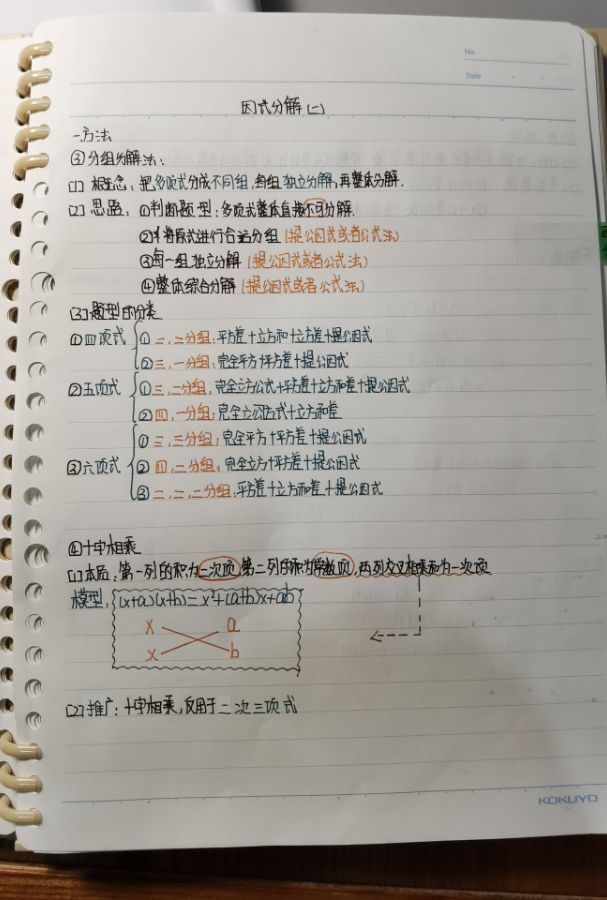 No.
Date
因式分解(二)
一方法
③分组分解法:
[1] 概念:把多项式分成不同组,每组独立分解,再整体分解.
[2] 思路:①判断题型:多项式整体直接不可分解.
②将原式进行合适分组(提公因式或者公式法)
③每一组独立分解(提公因式或者公式法)
④整体综合分解(提公因式或者公式法)
[3]题型的分类
①四项式 ①二,二分组:平方差+立方和+立方差+提公因式
②三,一分组:完全平方+平方差+提公因式
②五项式 ①三,二分组,完全立方公式+平方差+立方和差+提公因式
②四,一分组:完全立方公式+立方和差
③六项式 ①三,三分组:完全平方+平方差+提公因式
②四,二分组:完全立方+平方差+提公因式
③二,二,二分组:平方差+立方和差+提公因式
④十字相乘
[1]本质:第一列的积为二次项,第二列的积为常数项,两列交叉相乘和为一次项
模型: (x+a)(x+b)=x²+(a+b)x+ab
x a
x b
[2]推广:十字相乘,仅用于二次三项式
KOKUYO